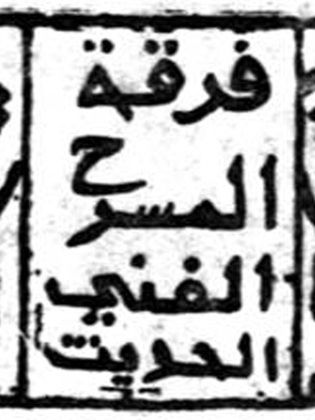 فرقة
المسرح
الفني
الحديث